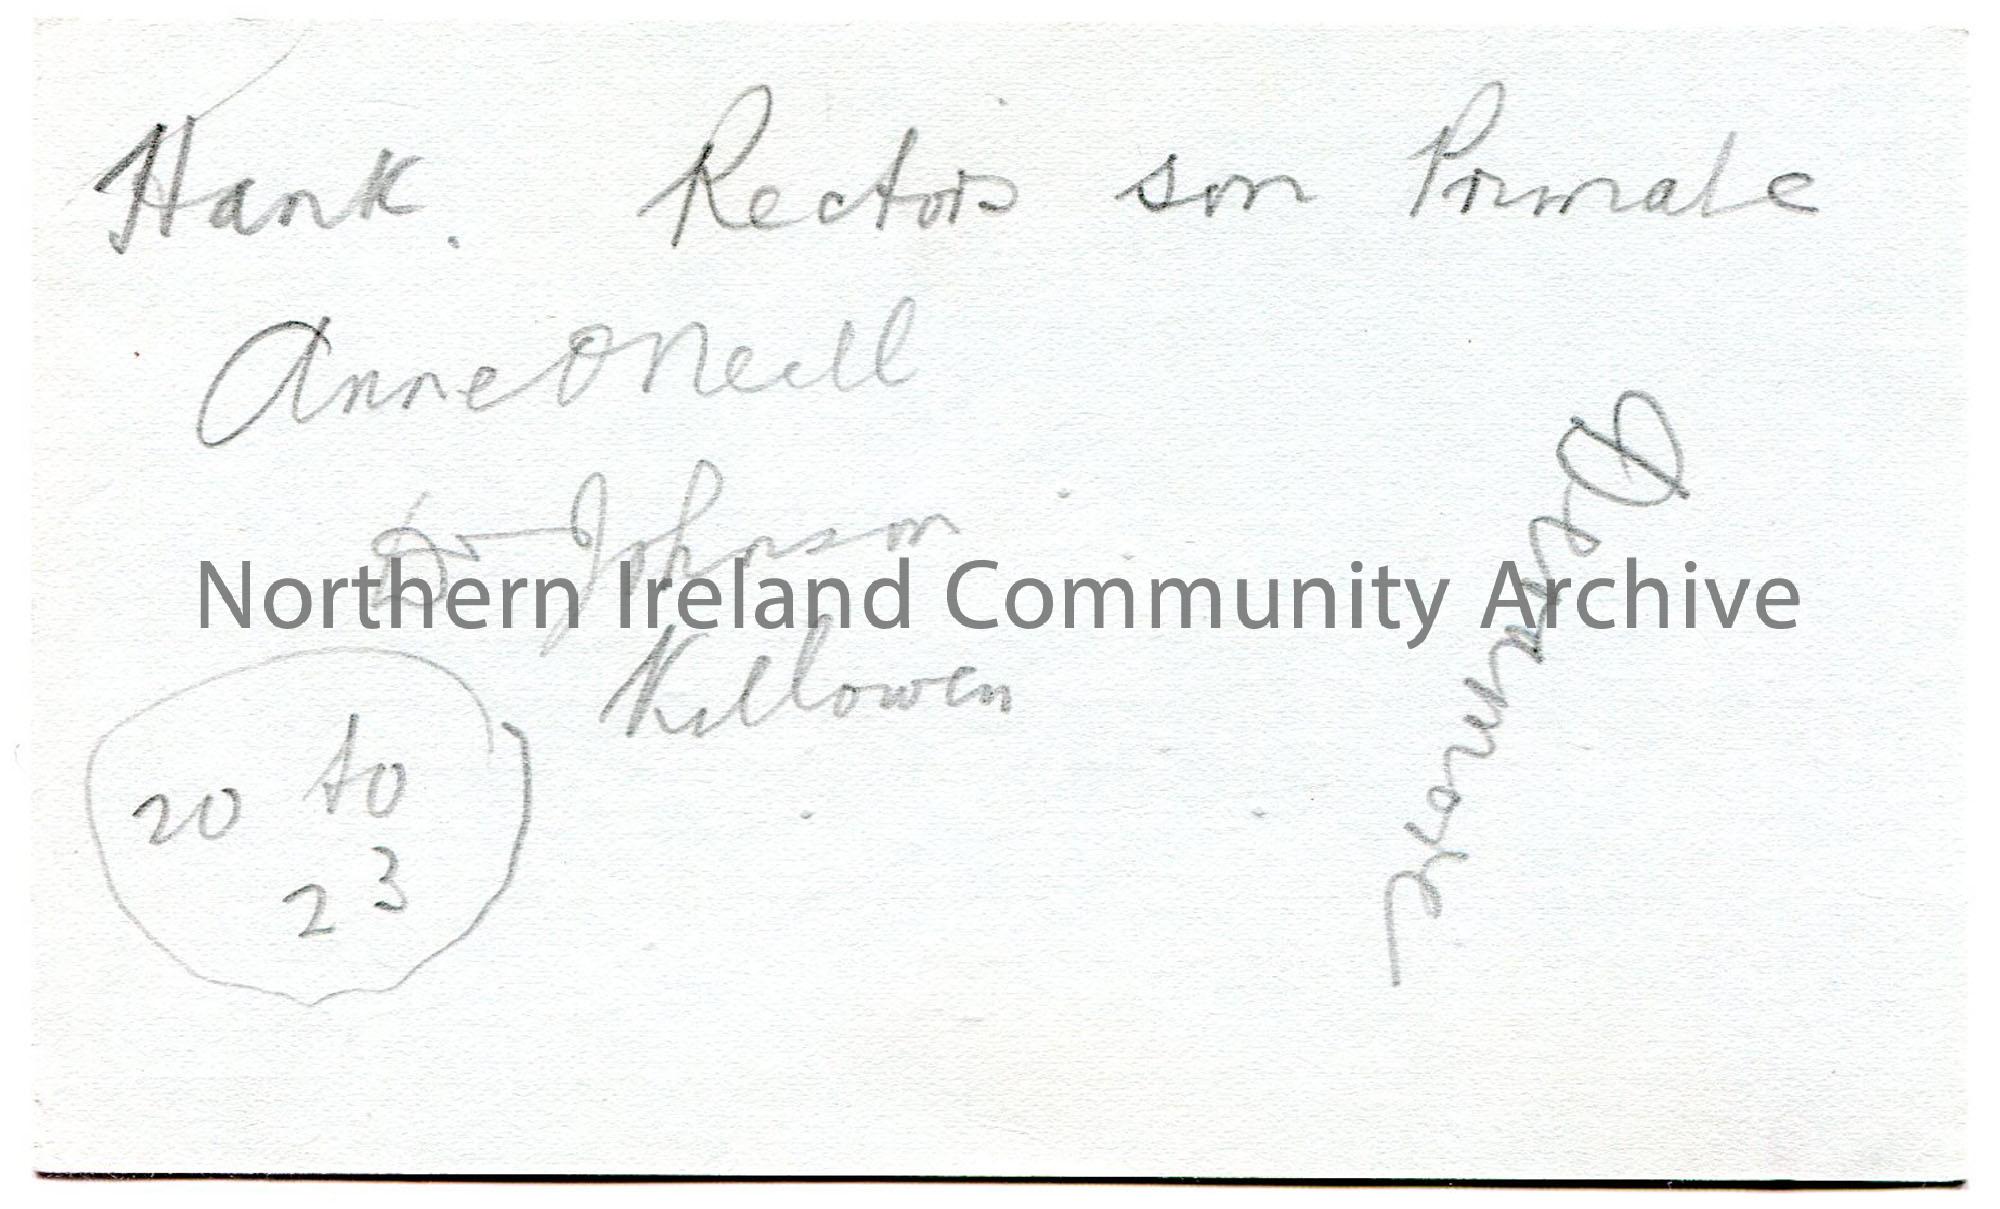 Hank. Rectors son Primate
Anne O Neill
Dr Johnson
Northern Ireland Community Archive
Killowen
20 to
23